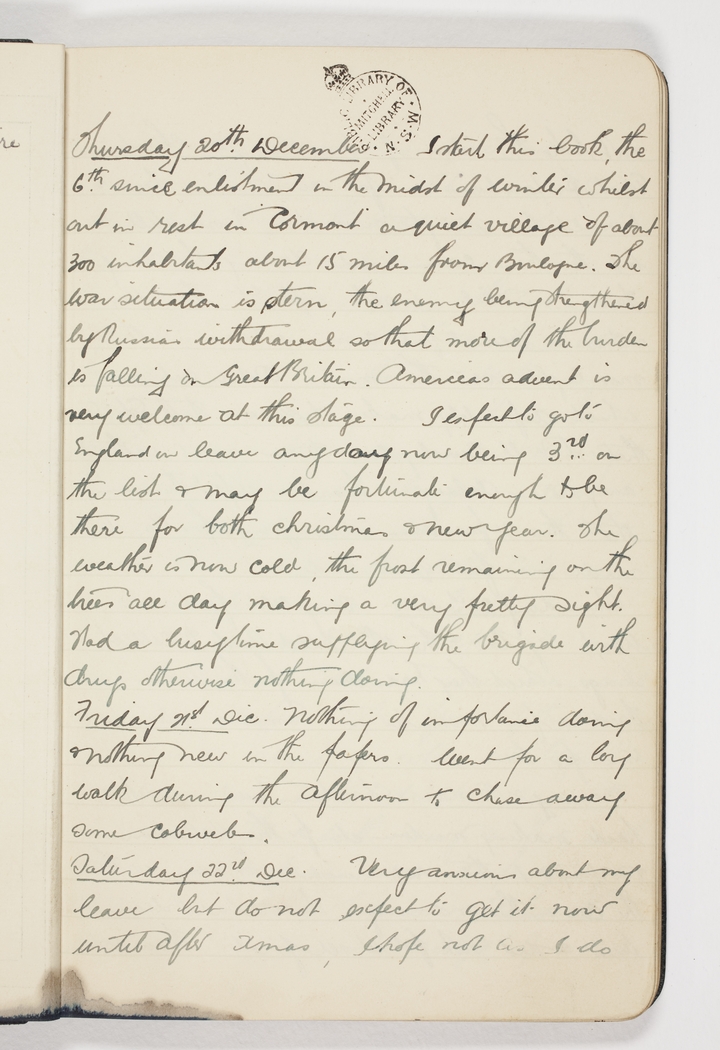 LIBRARY OF N.S.W.
MITCHELL
LIBRARY
Thursday 20th December I start this book, the
6th since enlistment in the midst of winter whilst
out in rest in Cormont a quiet village of about
300 inhabitants about 15 miles from Boulogne. The
war situation is stern, the enemy being strengthened
by Russian withdrawal so that more of the burden
is falling on Great Britain. Americas advent is
very welcome at this stage. I expect to go to
England on leave any day now being 3rd on
the list & may be fortunate enough to be
there for both christmas & new year. The
weather is now cold, the frost remaining on the
trees all day making a very pretty sight.
Had a busy time supplying the brigade with
drugs otherwise nothing doing.
Friday 21st Dec. Nothing of importance doing
& nothing new in the papers. Went for a long
walk during the afternoon to chase away
some cobwebs.
Saturday 22nd Dec. Very anxious about my
leave but do not expect to get it now
until after Xmas, I hope not as I do